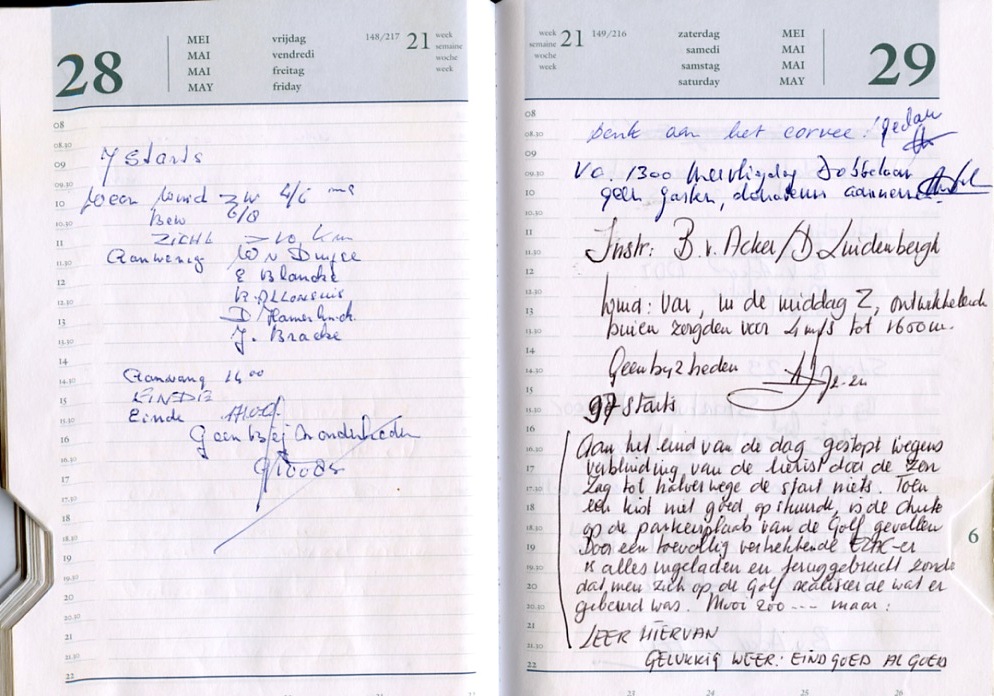 28
MEI
MAI
MAI
MAY
vrijdag
vendredi
freitag
friday
148/217
21
week
semaine
woche
week
08
08.30
09
09.30
10
10.30
11
11.30
12
12.30
13
13.30
14
14.30
15
15.30
16
16.30
17
17.30
18
18.30
19
19.30
20
20.30
21
21.30
22
7 Starts
wind ZW 4/6 m/s
Bew 6/8
ZICHt >10 km
Aanwezig W v Duyse
E Blancke
D Hamerlinck
J. Bracke
Aanvang 14 00
EINDE
Einde
Geen bijzonderheden
week
semaine
woche
week
21
149/216
zaterdag
samedi
samstag
saturday
MEI
MAI
MAI
MAY
29
08
08.30
09
09.30
10
10.30
11
11.30
12
12.30
13
13.30
14
14.30
15
15.30
16
16.30
17
17.30
18
18.30
19
19.30
20
20.30
21
21.30
22
Denk aan het corvee! gedaan
Va. 1300
geen gasten, donateurs aannemen
Instr: B. v. Acker / D Luidenbergh
Wind: var, in de middag Z, ontwikkelende
buien zorgden voor 4 m/s tot 1600 m.
Geen byzheden
97 starts
Aan het eind van de dag gestopt wegens
verblinding van de lierist door de zon
Zag tot halverwege de start niets. Toen
een kist niet goed opstuurde, is de chute
op de parkeerplaats van de Golf gevallen
Door een toevallig vertrekkende EZAC-er
is alles ingeladen en teruggebracht zonder
dat men zich op de Golf realiseerde wat er
gebeurd was. Mooi zoo --- maar:
LEER HIERVAN
GELUKKIG WEER: EIND GOED AL GOED
6
24
25
26
23
24
25
26